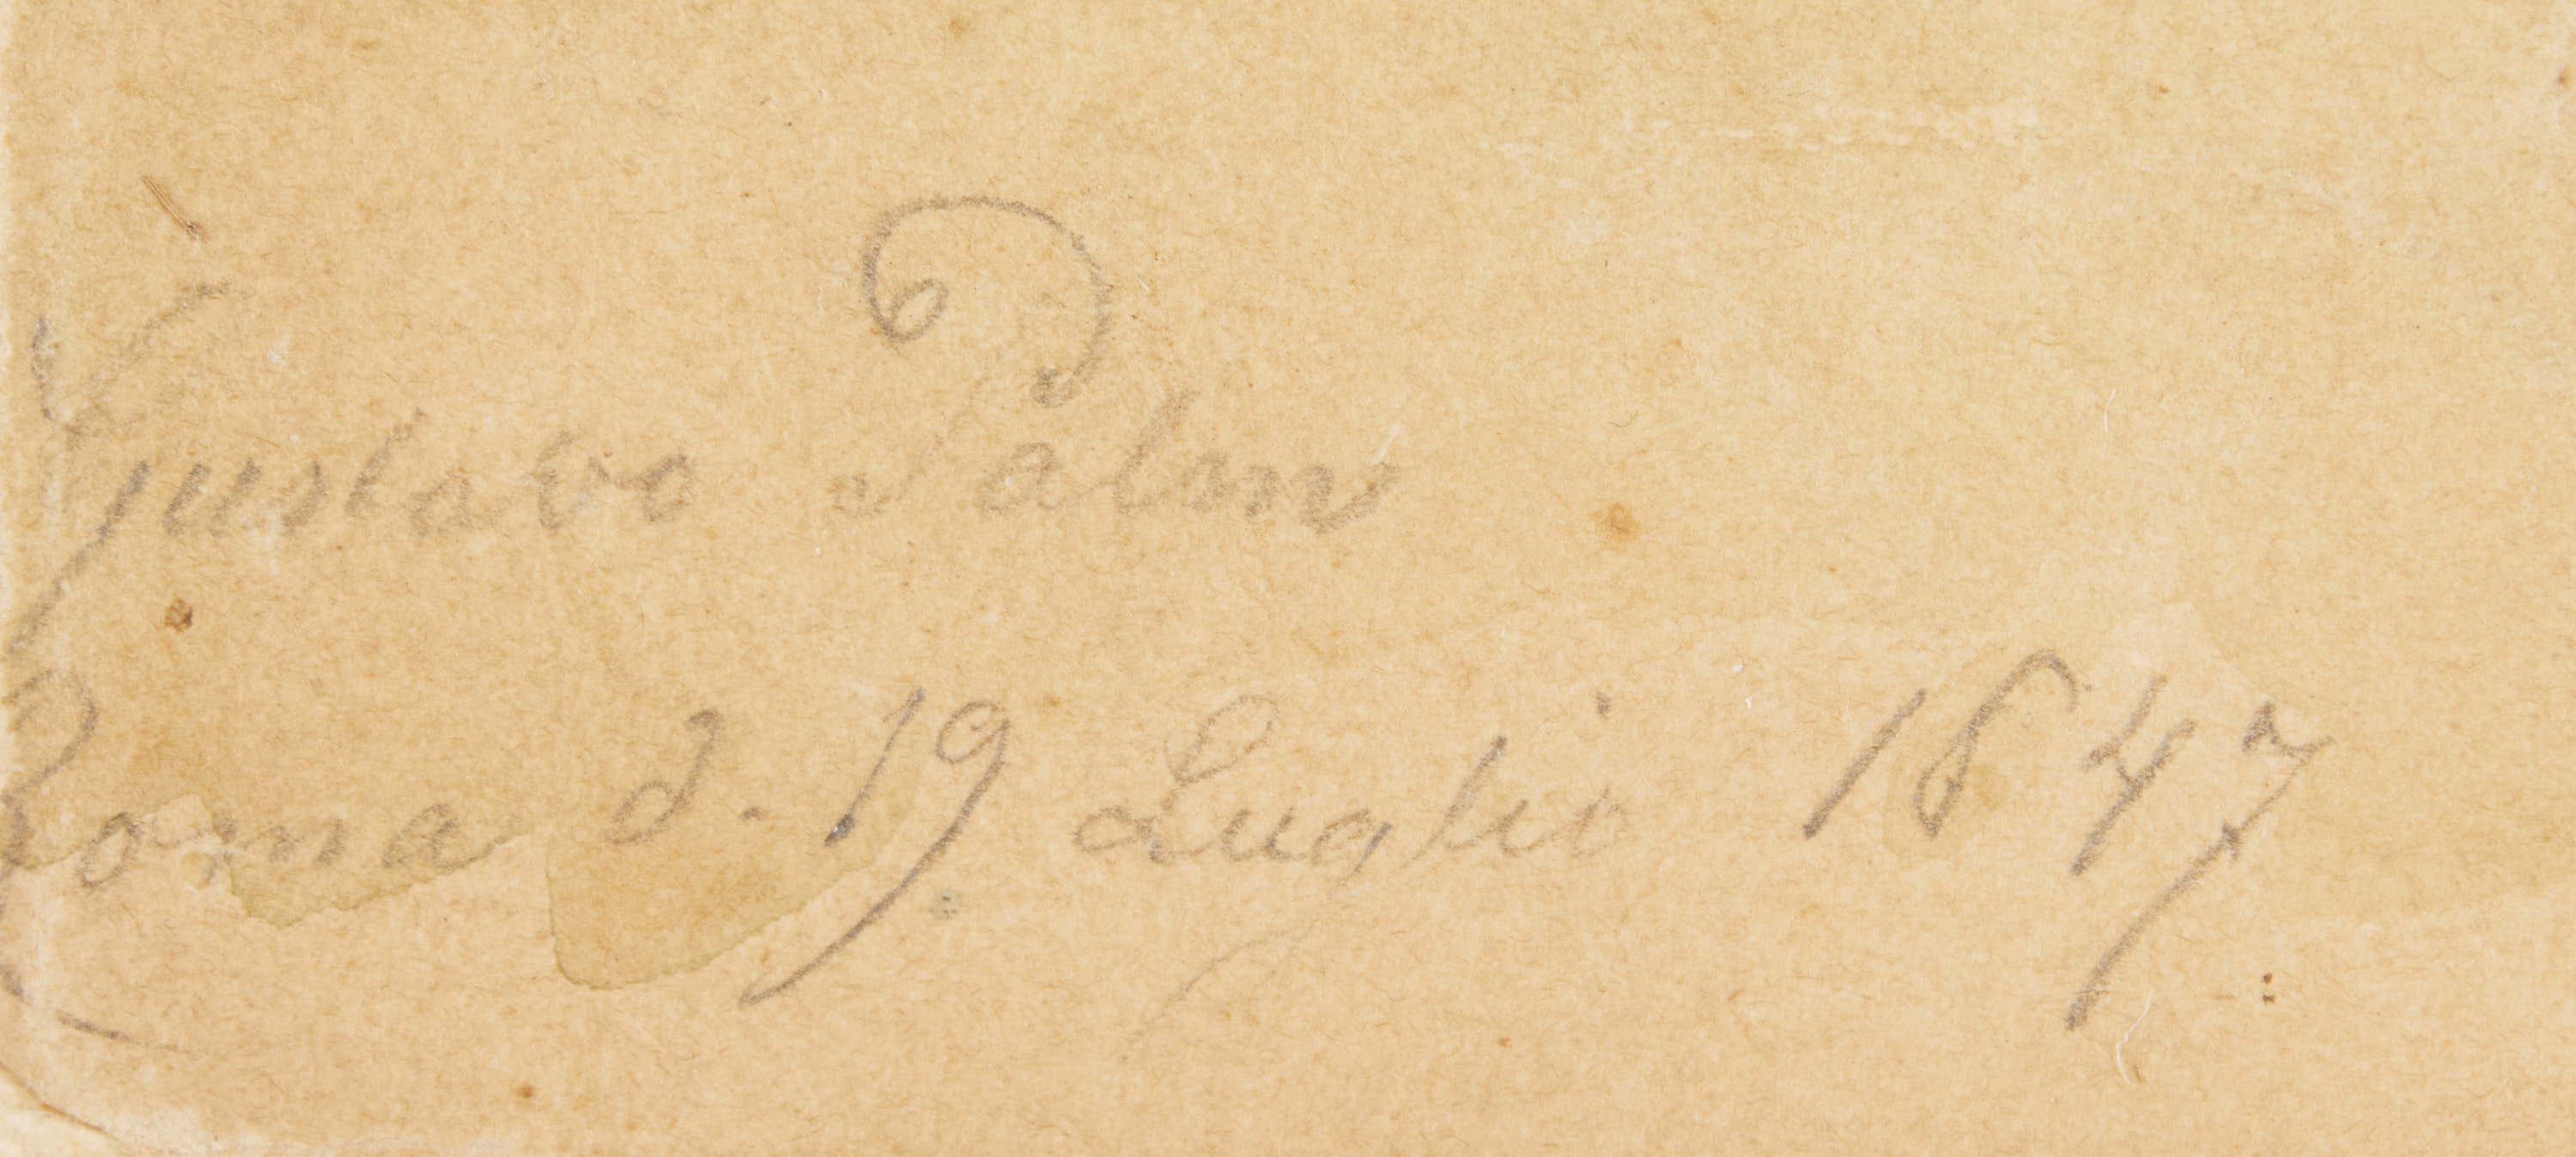 Gustavo Palm
Roma d. 19 Luglio 1847